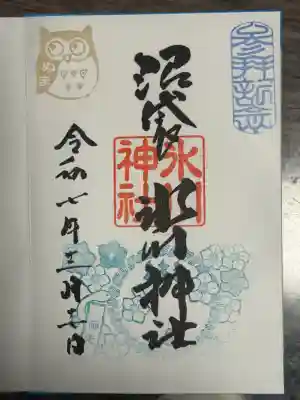 参拝記念
沼袋
氷川神社
氷川神社
令和七年三月六日
ぬま